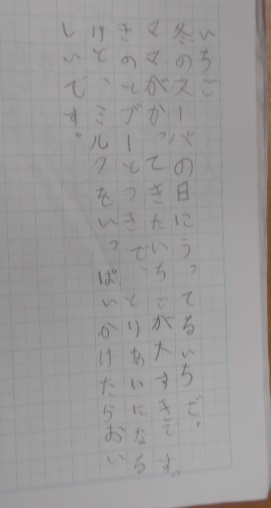 いちご
冬のスーパの日にうってるいちご。
ママがかってきたいちごが大すきです。
とりあいになる
けど、ミルクをいっぱいかけたらおい
しいです。